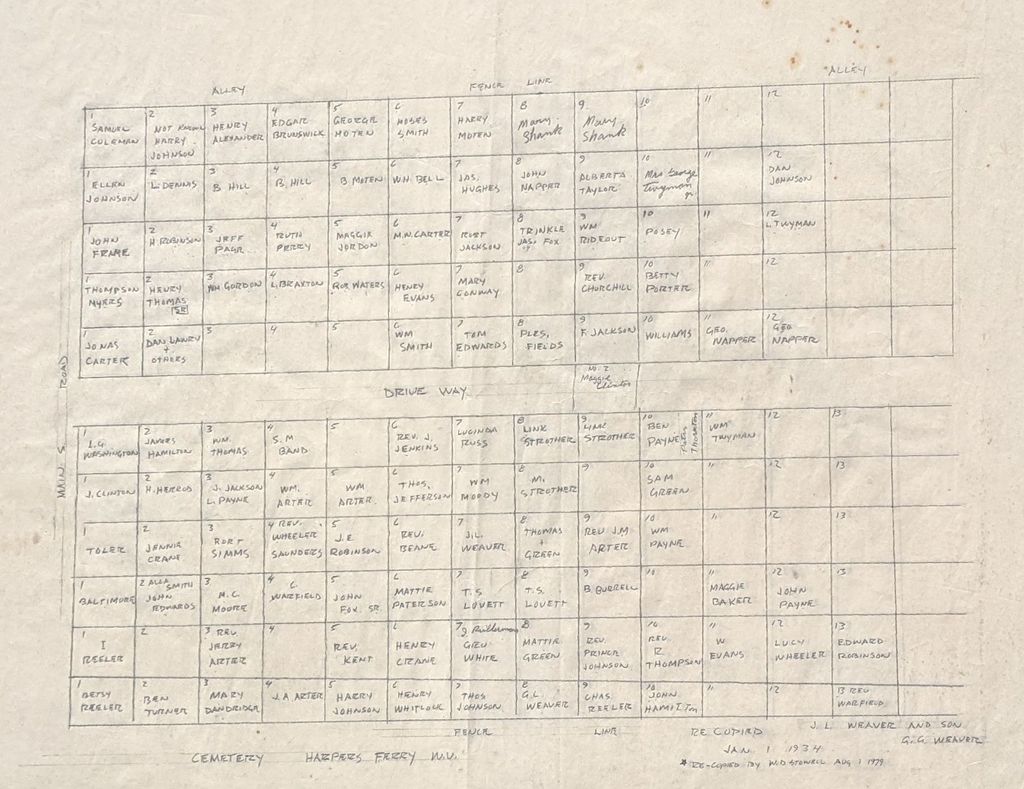 ALLEY
FENCE LINE
ALLEY
1 SAMUEL COLEMAN
2 NOT KNOWN HARRY JOHNSON
3 HENRY ALEXANDER
4 EDGAR BRUNSWICK
5 GEORGE MOTEN
6 MOSES SMITH
7 HARRY MOTEN
8 Mary Shank
9 Mary Shank
10
11
12
1 ELLEN JOHNSON
2 L. DENNIS
3 B HILL
4 B. HILL
5 B MOTEN
6 W.H. BELL
7 JAS. HUGHES
8 JOHN NAPPER
9 ALBERTA TAYLOR
10 Mrs George Twyman
11
12 DAN JOHNSON
1 JOHN FRAME
2 H ROBINSON
3 JEFF PAGE
4 RUTH PERRY
5 MAGGIE JORDON
6 M.W. CARTER
7 ROBT JACKSON
8 TRINKLE JAS. FOX
9 WM RIDEOUT
10 POSEY
11
12 L. TWYMAN
1 THOMPSON MYERS
2 HENRY THOMAS SR
3 WM GORDON
4 L. BRAXTON
5 ROB WATERS
6 HENRY EVANS
7 MARY CONWAY
8
9 REV. CHURCHILL
10 BETTY PORTER
11
12
1 JONAS CARTER
2 DAN LAWRY + OTHERS
3
4
5
6 WM SMITH
7 TOM EDWARDS
8 PLES, FIELDS
9 F. JACKSON
10 WILLIAMS
11 GEO. NAPPER
12 GEO NAPPER
MAIN S. ROAD
DRIVE WAY
NO. 2 Maggie Clinton
1 L.G. WASHINGTON
2 JAMES HAMILTON
3 WM. THOMAS
4 S. M BAND
5
6 REV. J. JENKINS
7 LUCINDA RUSS
8 LINK STROTHER
9 LINK STROTHER
10 BEN PAYNE Thornton
11 WM TWYMAN
12
13
1 J. CLINTON
2 H. HERROD
3 J. JACKSON L. PAYNE
4 WM. ARTER
5 WM ARTER
6 THOS, JEFFERSON
7 WM MOODY
8 M. STROTHER
9
10 SAM GREEN
11
12
13
1 TOLER
2 JENNIE CRANE
3 ROBT SIMMS
4 REV. WHEELER SAUNDERS
5 J.E ROBINSON
6 REV. BEANE
7 J.L. WEAVER
8 THOMAS + GREEN
9 REV J.M ARTER
10 WM PAYNE
11
12
13
1 BALTIMORE
2 ALLA SMITH JOHN EDWARDS
3 M.C. MOORE
4 C. WARFIELD
5 JOHN FOX. SR
6 MATTIE PATERSON
7 T. S LOVETT
8 T.S. LOVETT
9 B BURRELL
10
11 MAGGIE BAKER
12 JOHN PAYNE
13
1 I REELER
2
3 REV JERRY ARTER
4
5 REV. KENT
6 HENRY CRANE
7 WHITE
8 MATTIE GREEN
9 REV. PRINCE JOHNSON
10 REV. R THOMPSON
11 W EVANS
12 LUCY WHEELER
13 EDWARD ROBINSON
1 BETSY REELER
2 BEN TURNER
3 MARY DANDRIDGE
4 J.A ARTER
5 HARRY JOHNSON
6 HENRY WHITLOCK
7 THOS JOHNSON
8 G.L. WEAVER
9 CHAS. REELER
10 JOHN
11
12
13 REV WARFIELD
FENCE LINE
RE COPIED
JAN 1 1934
J. L. WEAVER AND SON
G. G. WEAVER
CEMETERY HARPERS FERRY W.V.
* RE-COPIED BY W.D STOWELL AUG 1 1979